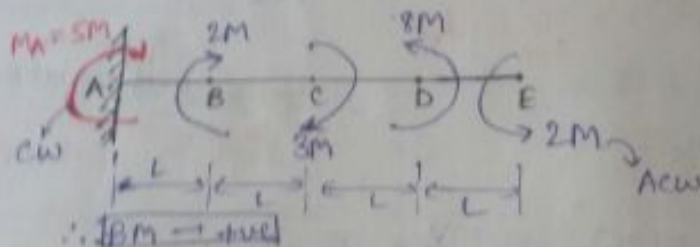 MA = 5M
2M
8M
A B C D E
CW
3M
2M
ACW
L L L L
∴ BM → +ve